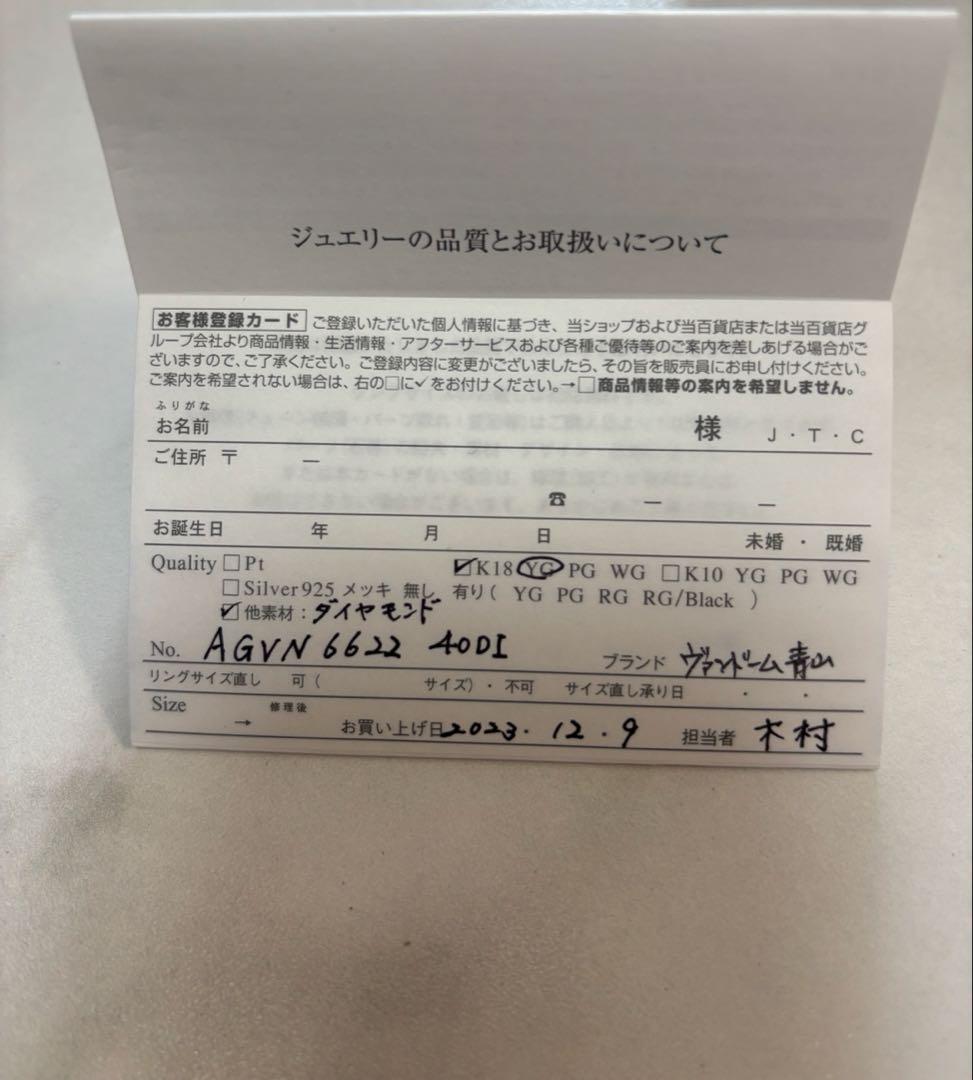 ジュエリーの品質とお取扱いについて
お客様登録カード ご登録いただいた個人情報に基づき、当ショップおよび当百貨店または当百貨店グ
ループ会社より商品情報・生活情報・アフターサービスおよび各種ご優待等のご案内を差しあげる場合がご
ざいますので、ご了承ください。ご登録内容に変更がございましたら、その旨を販売員にお申し付けください。
ご案内を希望されない場合は、右の□に✓をお付けください。→□商品情報等の案内を希望しません。
ふりがな
お名前 様 J・T・C
ご住所 〒 ―
☎ ― ―
お誕生日 年 月 日 未婚・既婚
Quality □Pt ☑K18 YG PG WG □K10 YG PG WG
□Silver925 メッキ 無し 有り( YG PG RG RG/Black )
☑他素材:ダイヤモンド
No. AGVN 6622 40DI ブランド ヴァンドーム青山
リングサイズ直し 可( サイズ)・不可 サイズ直し承り日 ・ ・
Size → 修理後 お買い上げ日 2023. 12. 9 担当者 木村